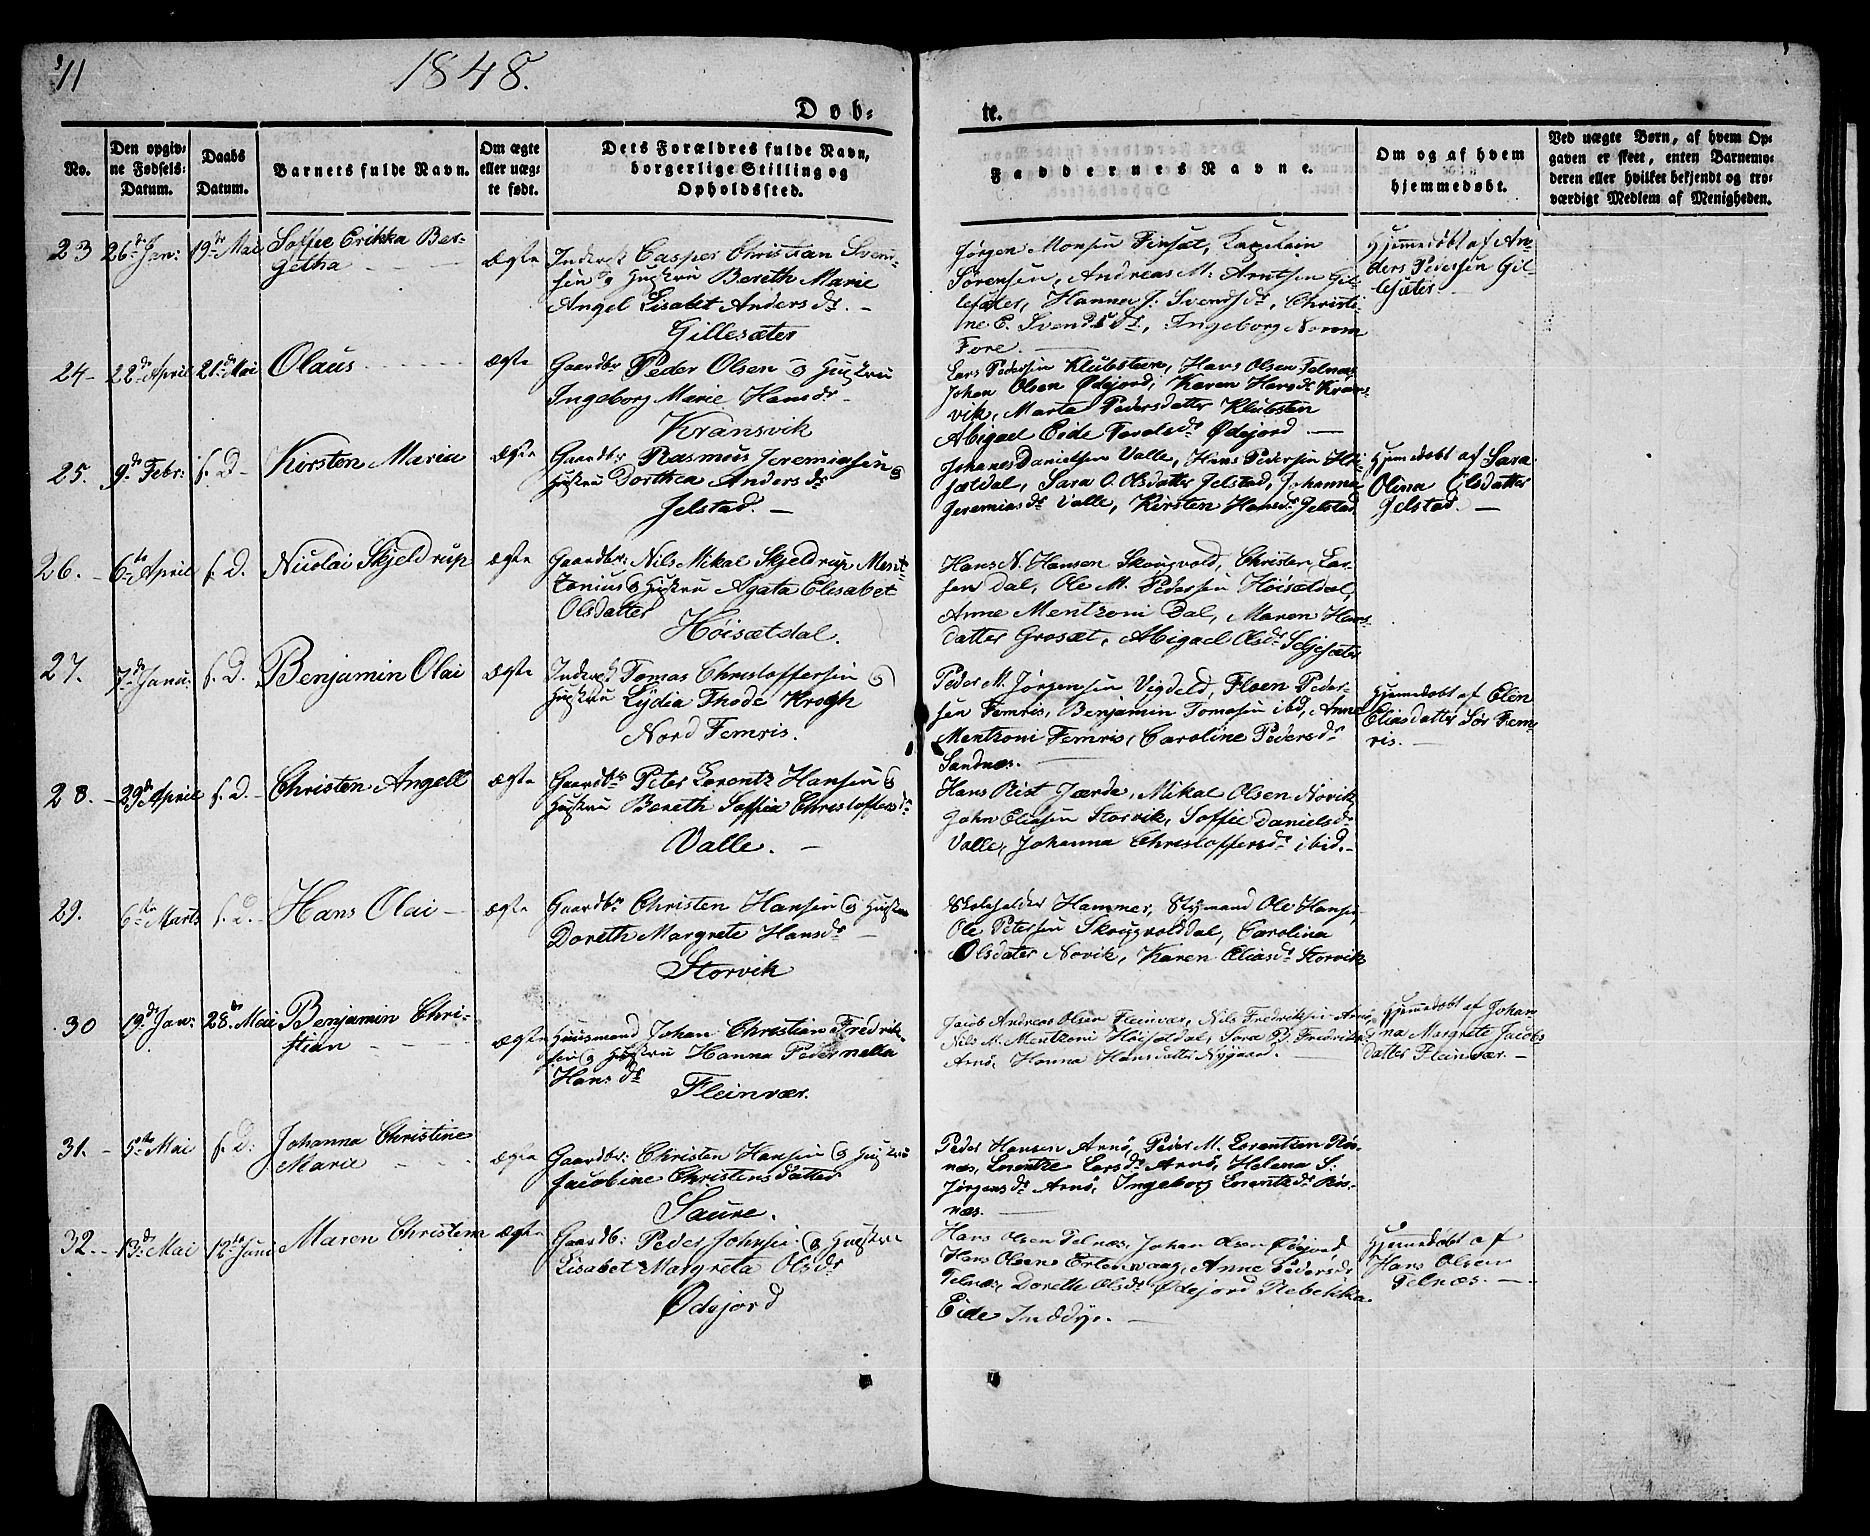 11
1848.
Døb-
te.
No.
Den opgiv-
ne Fødsels-
Datum.
Daabs
Datum.
Barnets fulde Navn.
Om ægte
eller uæg-
te født.
Dets Forældres fulde Navn,
borgerlige Stilling og
Opholdssted.
Faddernes Navne.
Om og af hvem
hjemmedøbt.
Ved uægte Børn, af hvem Op-
gaven er skeet, enten Barnemo-
deren eller hvilket bekjendt og tro-
værdigt Medlem af Menigheden.
23 26de Jan: 19de Mai
Soffie Erikka Ber-
getha
Ægte
Inderst Casper Christian Svend-
sen og Hustru Bereth Marie
Angel Lisabet Andersdr. -
Gillesæter
Jørgen Monsen Finsæt,
Sørensen, Andreas M. Arntsen Gil-
lesæter, Hanna J: Svendsdr, Christi-
ne E. Svendsdr, Ingeborg
Fore.
Hjemmedøbt af An-
ders Pedersen Gil-
lesæter
24 - 22de April 21de Mai
Olaus
Ægte
Gaardbr Peder Olsen og Hustru
Ingeborg Marie Hansdr -
Kransvik
Lars Pedersen Klubsteen, Hans Olsen Telnæs
Johan Olsen Ødejord, Karen Hansdr Krans-
vik, Marta Pedersdatter Klubsten
Abigael Eide Ødejord
25. 9de Febr: s. D-
Kirsten Maria
Ægte
Gaardbr Rasmus Jeremiasen og
Hustru Dorthea Andersdr
Jelstad. -
Johanes Danielsen Valle, Hans Pedersen Høi-
sætdal, Sara O. Olsdatter Jelstad, Johanna
Jeremiasdr Valle, Kirsten Hansdr Jelstad
Hjemmedøbt af Sara
Olina Olsdatter
Jelstad. -
26. - 6te April s. D.
Nicolai Skjeldrup
Ægte
Gaardbr: Nils Mikal Skjeldrup Ment-
zonius og Hustru Agata Elisabet
Olsdatter
Høisætdal.
Hans N. Hansen Skougvold, Christen Lar-
sen Dal, Ole M. Pedersen Høisætdal,
Anne Mentzoni Dal, Maren Hans-
datter Grosæt, Abigael Olsdr Seljesæter
27. 7de Janu: s. D.
Benjamin Olai
Ægte
Inderst Tomas Christoffersen og
Hustru Lydia Thode Krogh
Nord Femris.
Peder M. Jørgensen Vigdeld, Floen Peder-
sen Femris, Benjamin Tomasen ibid, Anne
Mentzoni Femris, Caroline Pedersdr
Sandnæs.
Hjemmedøbt af Elen
Eliasdatter Sør Fem-
ris. -
28. - 29de April s. D. -
Christen Angell
Ægte
Gaardbr Peter Lorentz Hansen og
Hustru Bereth Soffia Christoffersdr
Valle. -
Hans Rist Jærde, Mikal Olsen Novik,
John Eliasen Storvik, Soffie Danielsdr
Valle, Johanna Christoffersdr ibid. -
29. 6te Marts s. D. -
Hans Olai -
Ægte
Gaardbr Christen Hansen og Hustru
Doreth Margrete Hansdr -
Storvik
Skoleholder Hammer, Styrmand Ole Hansen
Ole Petersen Skougvolddal, Carolina
Olsdater Novik, Karen Eliasdr Storvik
30 19de Jan: 28de Mai
Benjamin Chri-
stian
Ægte
Huusmand Johan Christian Fredrik-
sen og Hustru Hanna Pedernella
Hansdr
Fleinvær.
Jacob Andreas Olsen Fleinvær, Nils Fredriksen Arnø,
Nils M. Mentzoni Høisætdal, Sara P. Fredriksdr
Arnø, Hanna Hansdatter Nygaard.
Hjemmedøbt af Johan-
na Margrete Jacobs-
datter Fleinvær. -
31. - 5te Mai s. D.
Johanna Christine
Maria
Ægte
Gaardbr: Christen Hansen og Hustru
Jacobine Christensdatter
Saure.
Peder Hansen Arnø, Peder M. Lorentzen Røs-
næs, Lorentze Larsdr Arnø, Helena S:
Jørgensdr Arnø, Ingeborg Lorentzdr Røs-
næs.
32. - 13de Mai 12te Juni
Maren Christina
Ægte
Gaardb: Peder Johnsen og Hustru
Lisabet Margreta Olsdr
Ødejord
Hans Olsen Telnæs, Johan Olsen Ødejord
Hans Olsen Ertenvaag, Anne Pedersdr
Telnæs, Doreth Olsdr Ødejord Rebekka
Eide Inddyr. -
Hjemmedøbt af
Hans Olsen
Telnæs. -